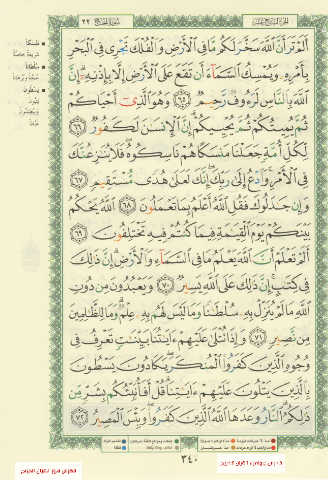 سورة الحج ٢٢
أَلَمْ تَرَ أَنَّ ٱللَّهَ سَخَّرَ لَكُم مَّا فِى ٱلْأَرْضِ وَٱلْفُلْكَ تَجْرِى فِى ٱلْبَحْرِ
بِأَمْرِهِۦ وَيُمْسِكُ ٱلسَّمَآءَ أَن تَقَعَ عَلَى ٱلْأَرْضِ إِلَّا بِإِذْنِهِۦٓ إِنَّ
ٱللَّهَ بِٱلنَّاسِ لَرَءُوفٌ رَّحِيمٌ ٦٥ وَهُوَ ٱلَّذِىٓ أَحْيَاكُمْ
ثُمَّ يُمِيتُكُمْ ثُمَّ يُحْيِيكُمْ إِنَّ ٱلْإِنسَٰنَ لَكَفُورٌ ٦٦
لِّكُلِّ أُمَّةٍ جَعَلْنَا مَنسَكًا هُمْ نَاسِكُوهُ فَلَا يُنَٰزِعُنَّكَ
فِى ٱلْأَمْرِ وَٱدْعُ إِلَىٰ رَبِّكَ إِنَّكَ لَعَلَىٰ هُدًى مُّسْتَقِيمٍ ٦٧
وَإِن جَٰدَلُوكَ فَقُلِ ٱللَّهُ أَعْلَمُ بِمَا تَعْمَلُونَ ٦٨ ٱللَّهُ يَحْكُمُ
بَيْنَكُمْ يَوْمَ ٱلْقِيَٰمَةِ فِيمَا كُنتُمْ فِيهِ تَخْتَلِفُونَ ٦٩
أَلَمْ تَعْلَمْ أَنَّ ٱللَّهَ يَعْلَمُ مَا فِى ٱلسَّمَآءِ وَٱلْأَرْضِ إِنَّ ذَٰلِكَ
فِى كِتَٰبٍ إِنَّ ذَٰلِكَ عَلَى ٱللَّهِ يَسِيرٌ ٧٠ وَيَعْبُدُونَ مِن دُونِ
ٱللَّهِ مَا لَمْ يُنَزِّلْ بِهِۦ سُلْطَٰنًا وَمَا لَيْسَ لَهُم بِهِۦ عِلْمٌ وَمَا لِلظَّٰلِمِينَ
مِن نَّصِيرٍ ٧١ وَإِذَا تُتْلَىٰ عَلَيْهِمْ ءَايَٰتُنَا بَيِّنَٰتٍ تَعْرِفُ فِى
وُجُوهِ ٱلَّذِينَ كَفَرُوا۟ ٱلْمُنكَرَ يَكَادُونَ يَسْطُونَ
بِٱلَّذِينَ يَتْلُونَ عَلَيْهِمْ ءَايَٰتِنَا قُلْ أَفَأُنَبِّئُكُم بِشَرٍّ مِّن
ذَٰلِكُمُ ٱلنَّارُ وَعَدَهَا ٱللَّهُ ٱلَّذِينَ كَفَرُوا۟ وَبِئْسَ ٱلْمَصِيرُ ٧٢
٣٤٠